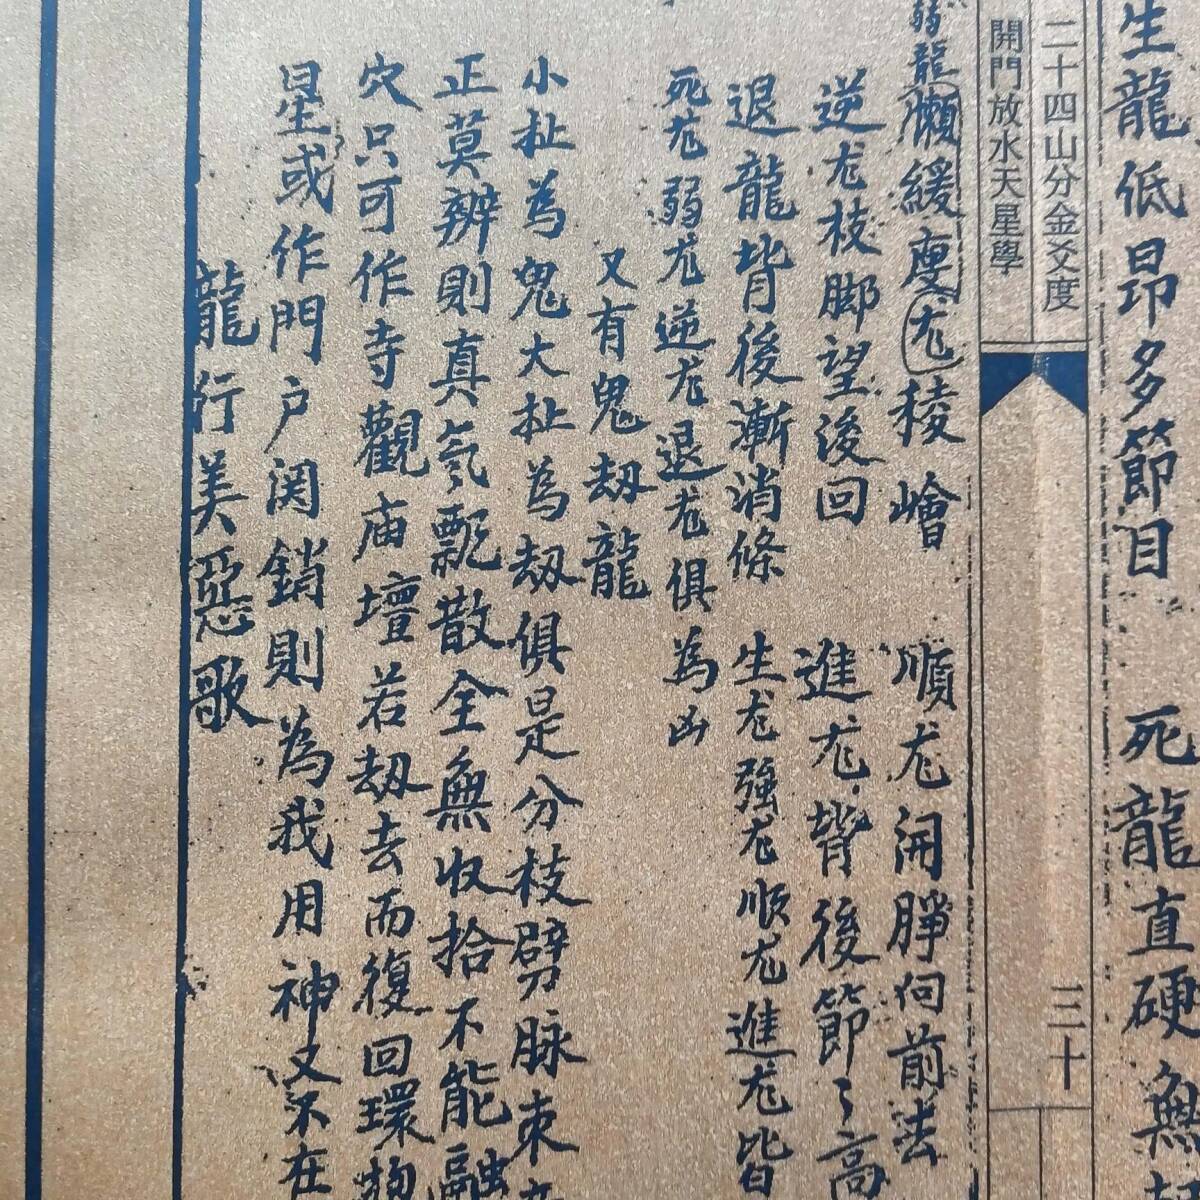 生龍低昂多節目 死龍直硬無
二十四山分金爻度
開門放水天星學
三十
弱龍懶緩瘦尨稜嶒 順尨開睜向前去
逆尨枝脚望後回 進尨背後節々高
退龍背後漸消條 生尨強尨順尨進尨皆
死尨弱尨逆尨退尨俱為凶
又有鬼劫龍
小扯為鬼大扯為劫俱是分枝劈脉束
正莫辨則真氣飄散全無收拾不能融
穴只可作寺觀庙壇若劫去而復回環
星或作門户関銷則為我用神又不在
龍行美惡歌